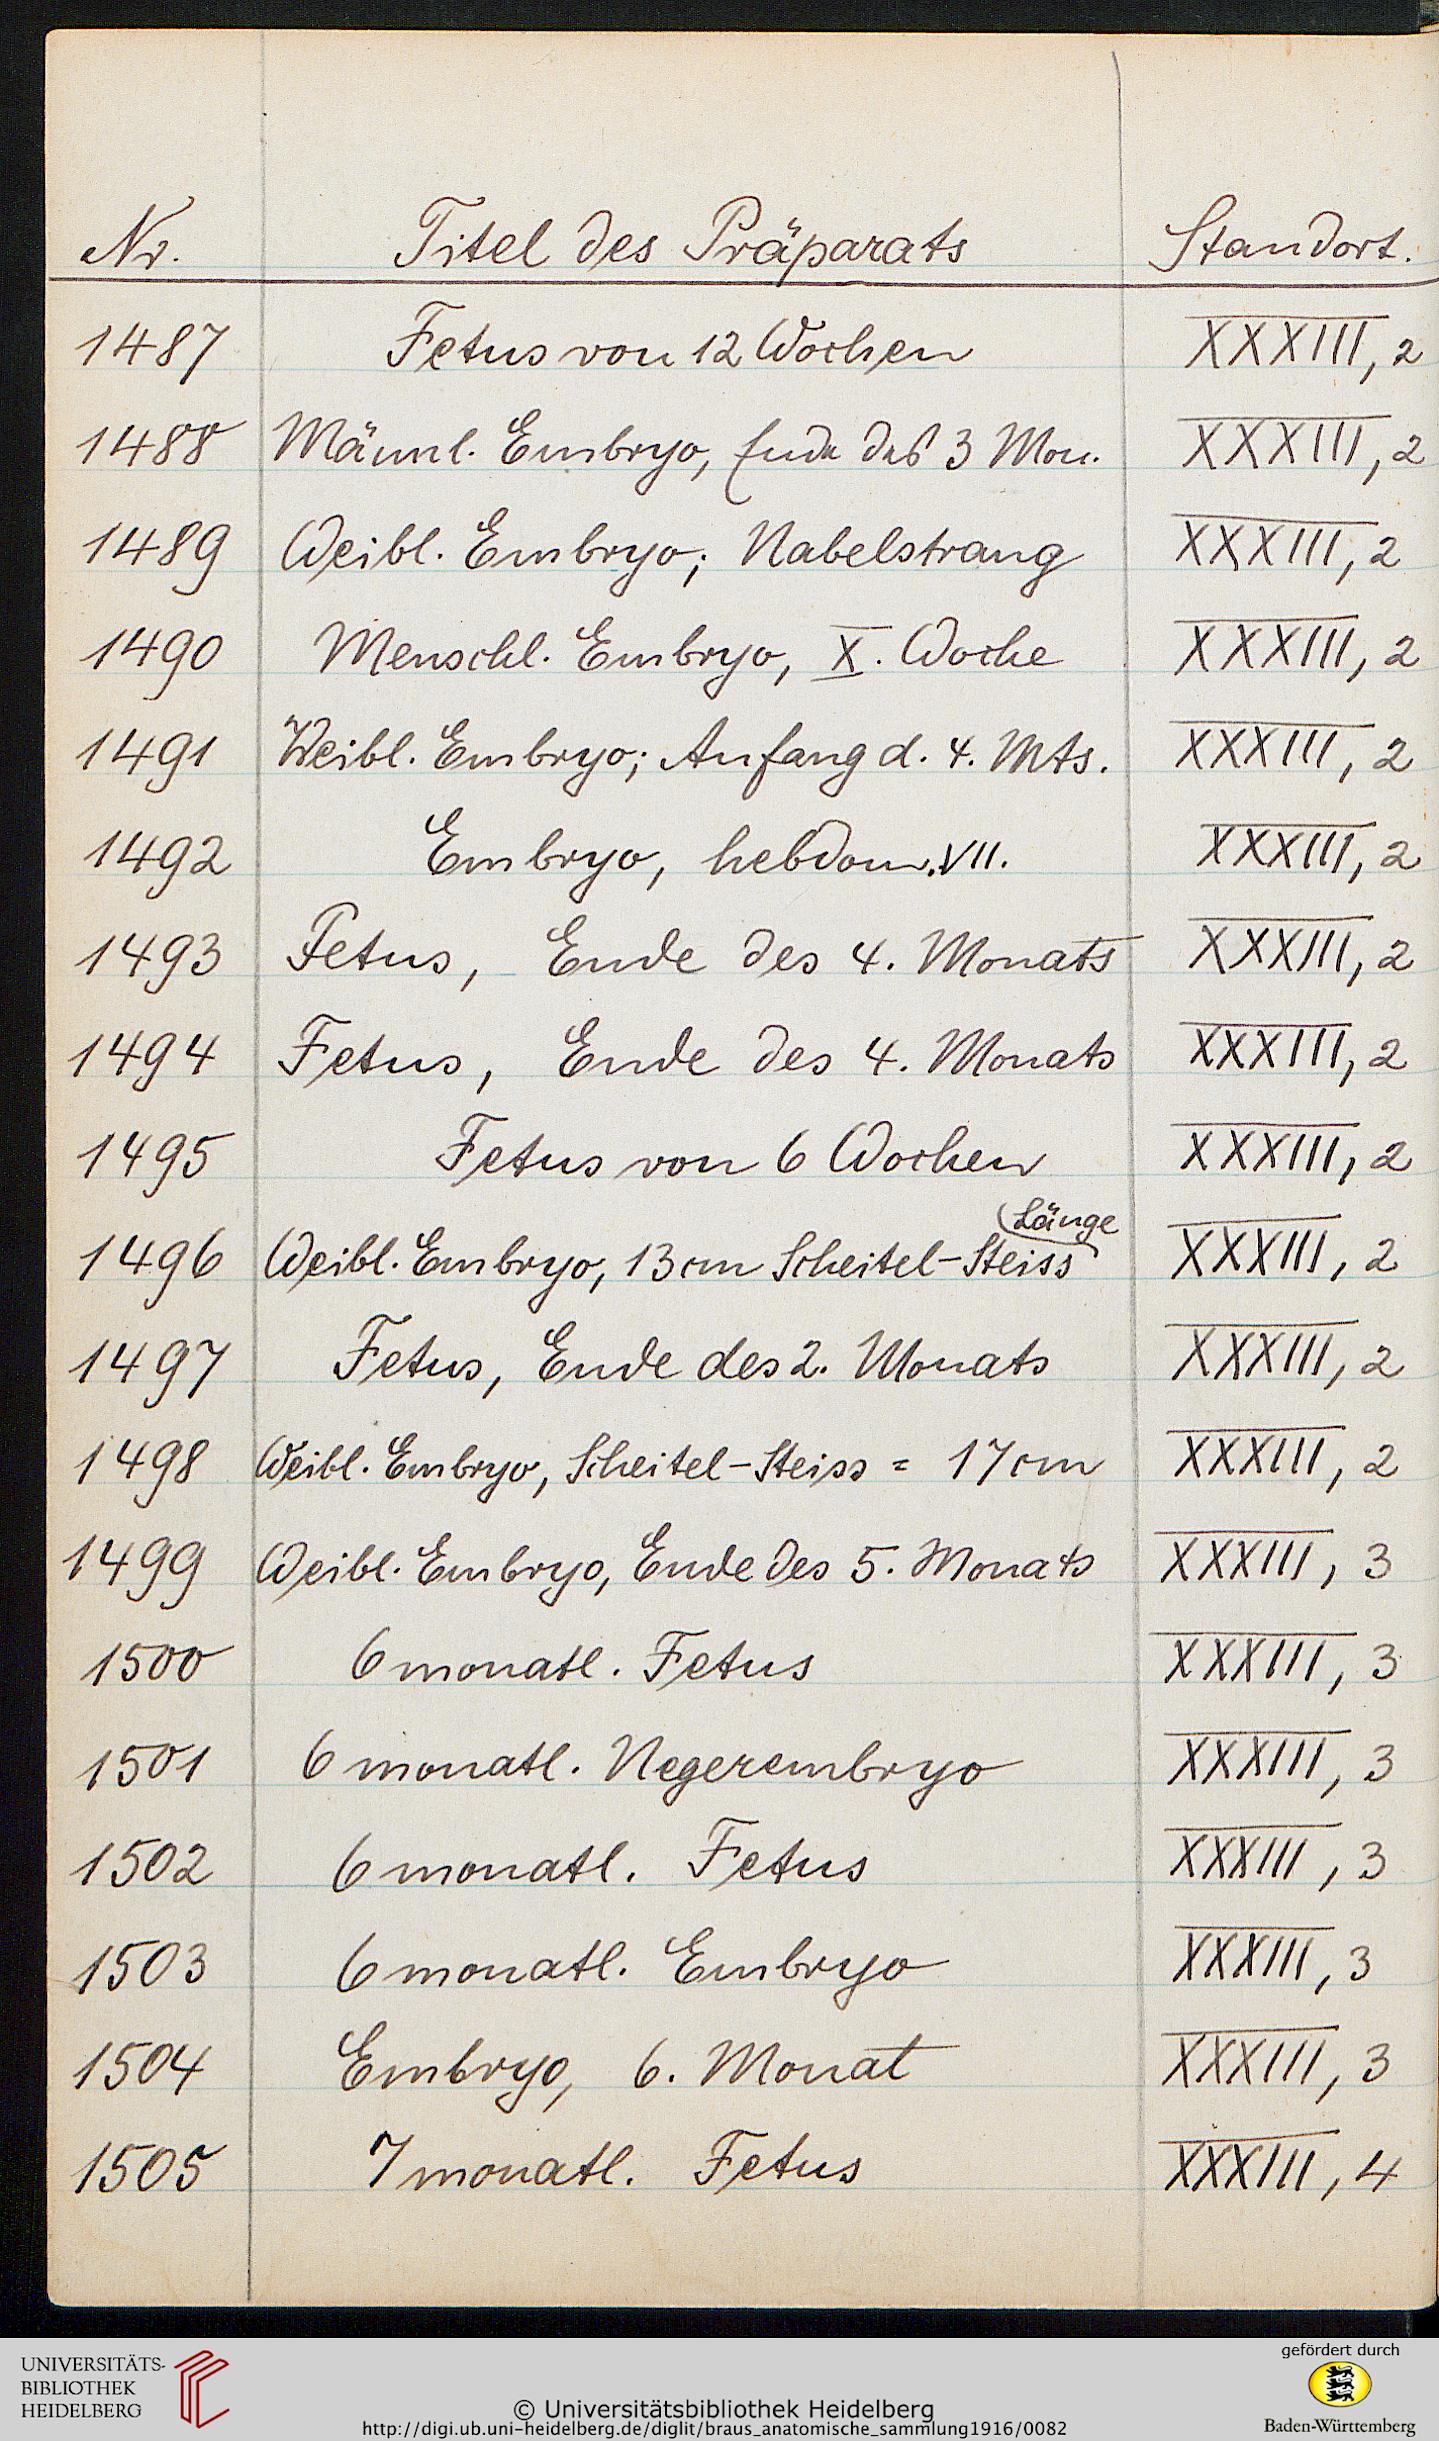 Nr. Titel des Präparats Standort.
1487 Fetus von 12 Wochen XXXIII, 2
1488 Männl. Embryo, Ende des 3 Mon. XXXIII, 2
1489 Weibl. Embryo; Nabelstrang XXXIII, 2
1490 Menschl. Embryo, X. Woche XXXIII, 2
1491 Weibl. Embryo; Anfang d. 4. Mts. XXXIII, 2
1492 Embryo, hebdom. VII. XXXIII, 2
1493 Fetus, Ende des 4. Monats XXXIII, 2
1494 Fetus, Ende des 4. Monats XXXIII, 2
1495 Fetus von 6 Wochen XXXIII, 2
1496 Weibl. Embryo, 13 cm Scheitel-Steiss Länge XXXIII, 2
1497 Fetus, Ende des 2. Monats XXXIII, 2
1498 Weibl. Embryo, Scheitel-Steiss = 17 cm XXXIII, 2
1499 Weibl. Embryo, Ende des 5. Monats XXXIII, 3
1500 6 monatl. Fetus XXXIII, 3
1501 6 monatl. Negerembryo XXXIII, 3
1502 6 monatl. Fetus XXXIII, 3
1503 6 monatl. Embryo XXXIII, 3
1504 Embryo, 6. Monat XXXIII, 3
1505 7 monatl. Fetus XXXIII, 4
UNIVERSITÄTS-
BIBLIOTHEK
HEIDELBERG
© Universitätsbibliothek Heidelberg
http://digi.ub.uni-heidelberg.de/diglit/braus_anatomische_sammlung1916/0082
gefördert durch
Baden-Württemberg